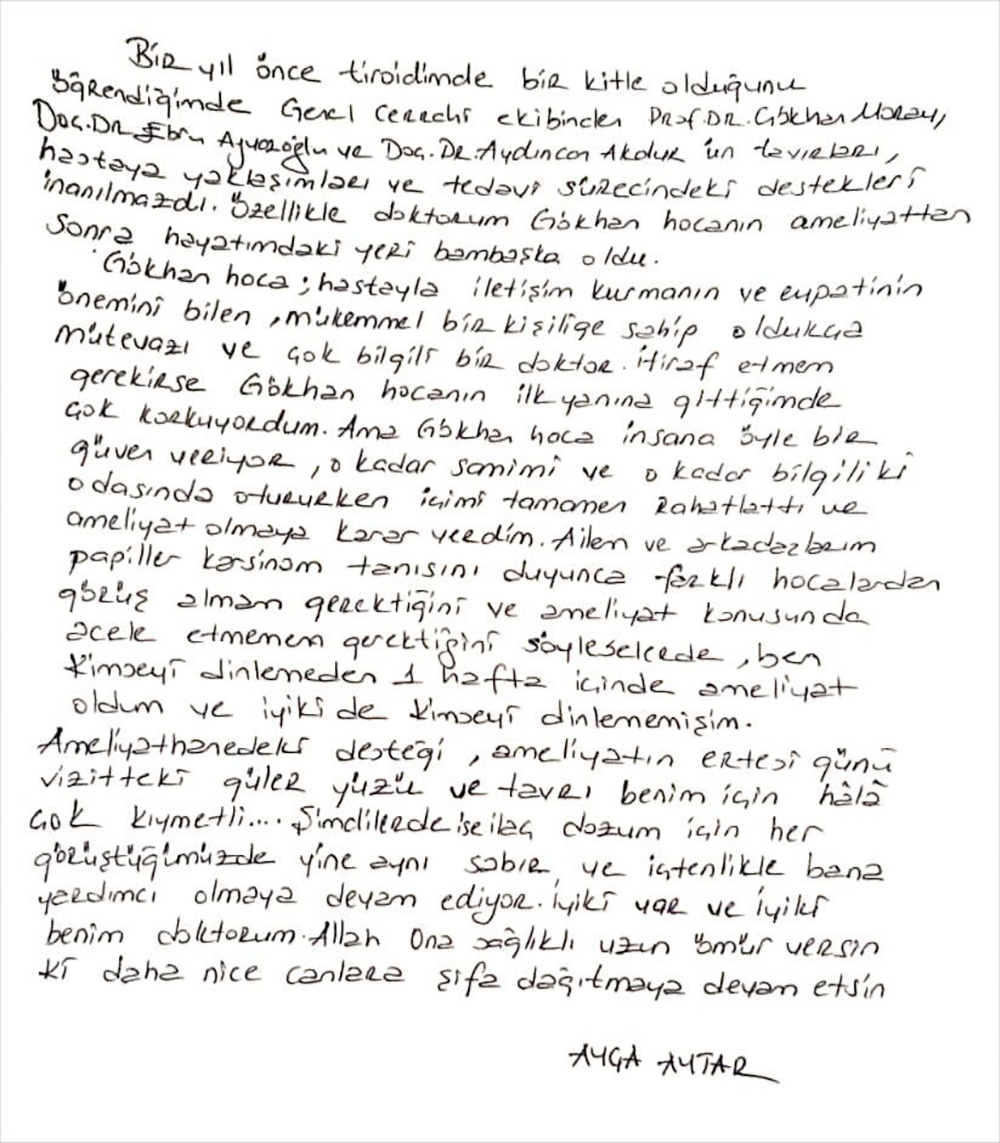 Bir yıl önce tiroidimde bir kitle olduğunu
öğrendiğimde Genel Cerrahi ekibinden Prof.Dr. Gökhan Moray,
Doç.Dr Ebru Ayvazoğlu ve Doç.Dr. Aydıncan Akdur'ün tavırları,
hastaya yaklaşımları ve tedavi sürecindeki destekleri
inanılmazdı. Özellikle doktorum Gökhan hocanın ameliyattan
sonra hayatımdaki yeri bambaşka oldu.
Gökhan hoca; hastayla iletişim kurmanın ve empatinin
önemini bilen, mükemmel bir kişiliğe sahip oldukça
mütevazı ve çok bilgili bir doktor. İtiraf etmem
gerekirse Gökhan hocanın ilk yanına gittiğimde
çok korkuyordum. Ama Gökhan hoca insana öyle bir
güven veriyor, o kadar samimi ve o kadar bilgili ki
odasında otururken içimi tamamen rahatlattı ve
ameliyat olmaya karar verdim. Ailem ve arkadaşlarım
papiller karsinom tanısını duyunca farklı hocalardan
görüş almam gerektiğini ve ameliyat konusunda
acele etmemem gerektiğini söyleselerde, ben
kimseyi dinlemeden 1 hafta içinde ameliyat
oldum ve iyiki de kimseyi dinlememişim.
Ameliyathanedeki desteği, ameliyatın ertesi günü
vizitteki güler yüzü ve tavrı benim için hâlâ
çok kıymetli.... Şimdilerde ise ilaç dozum için her
görüştüğümüzde yine aynı sabır ve içtenlikle bana
yardımcı olmaya devam ediyor. İyiki var ve iyiki
benim doktorum. Allah Ona sağlıklı uzun ömür versin
ki daha nice canlara şifa dağıtmaya devam etsin
AYÇA AYTAR